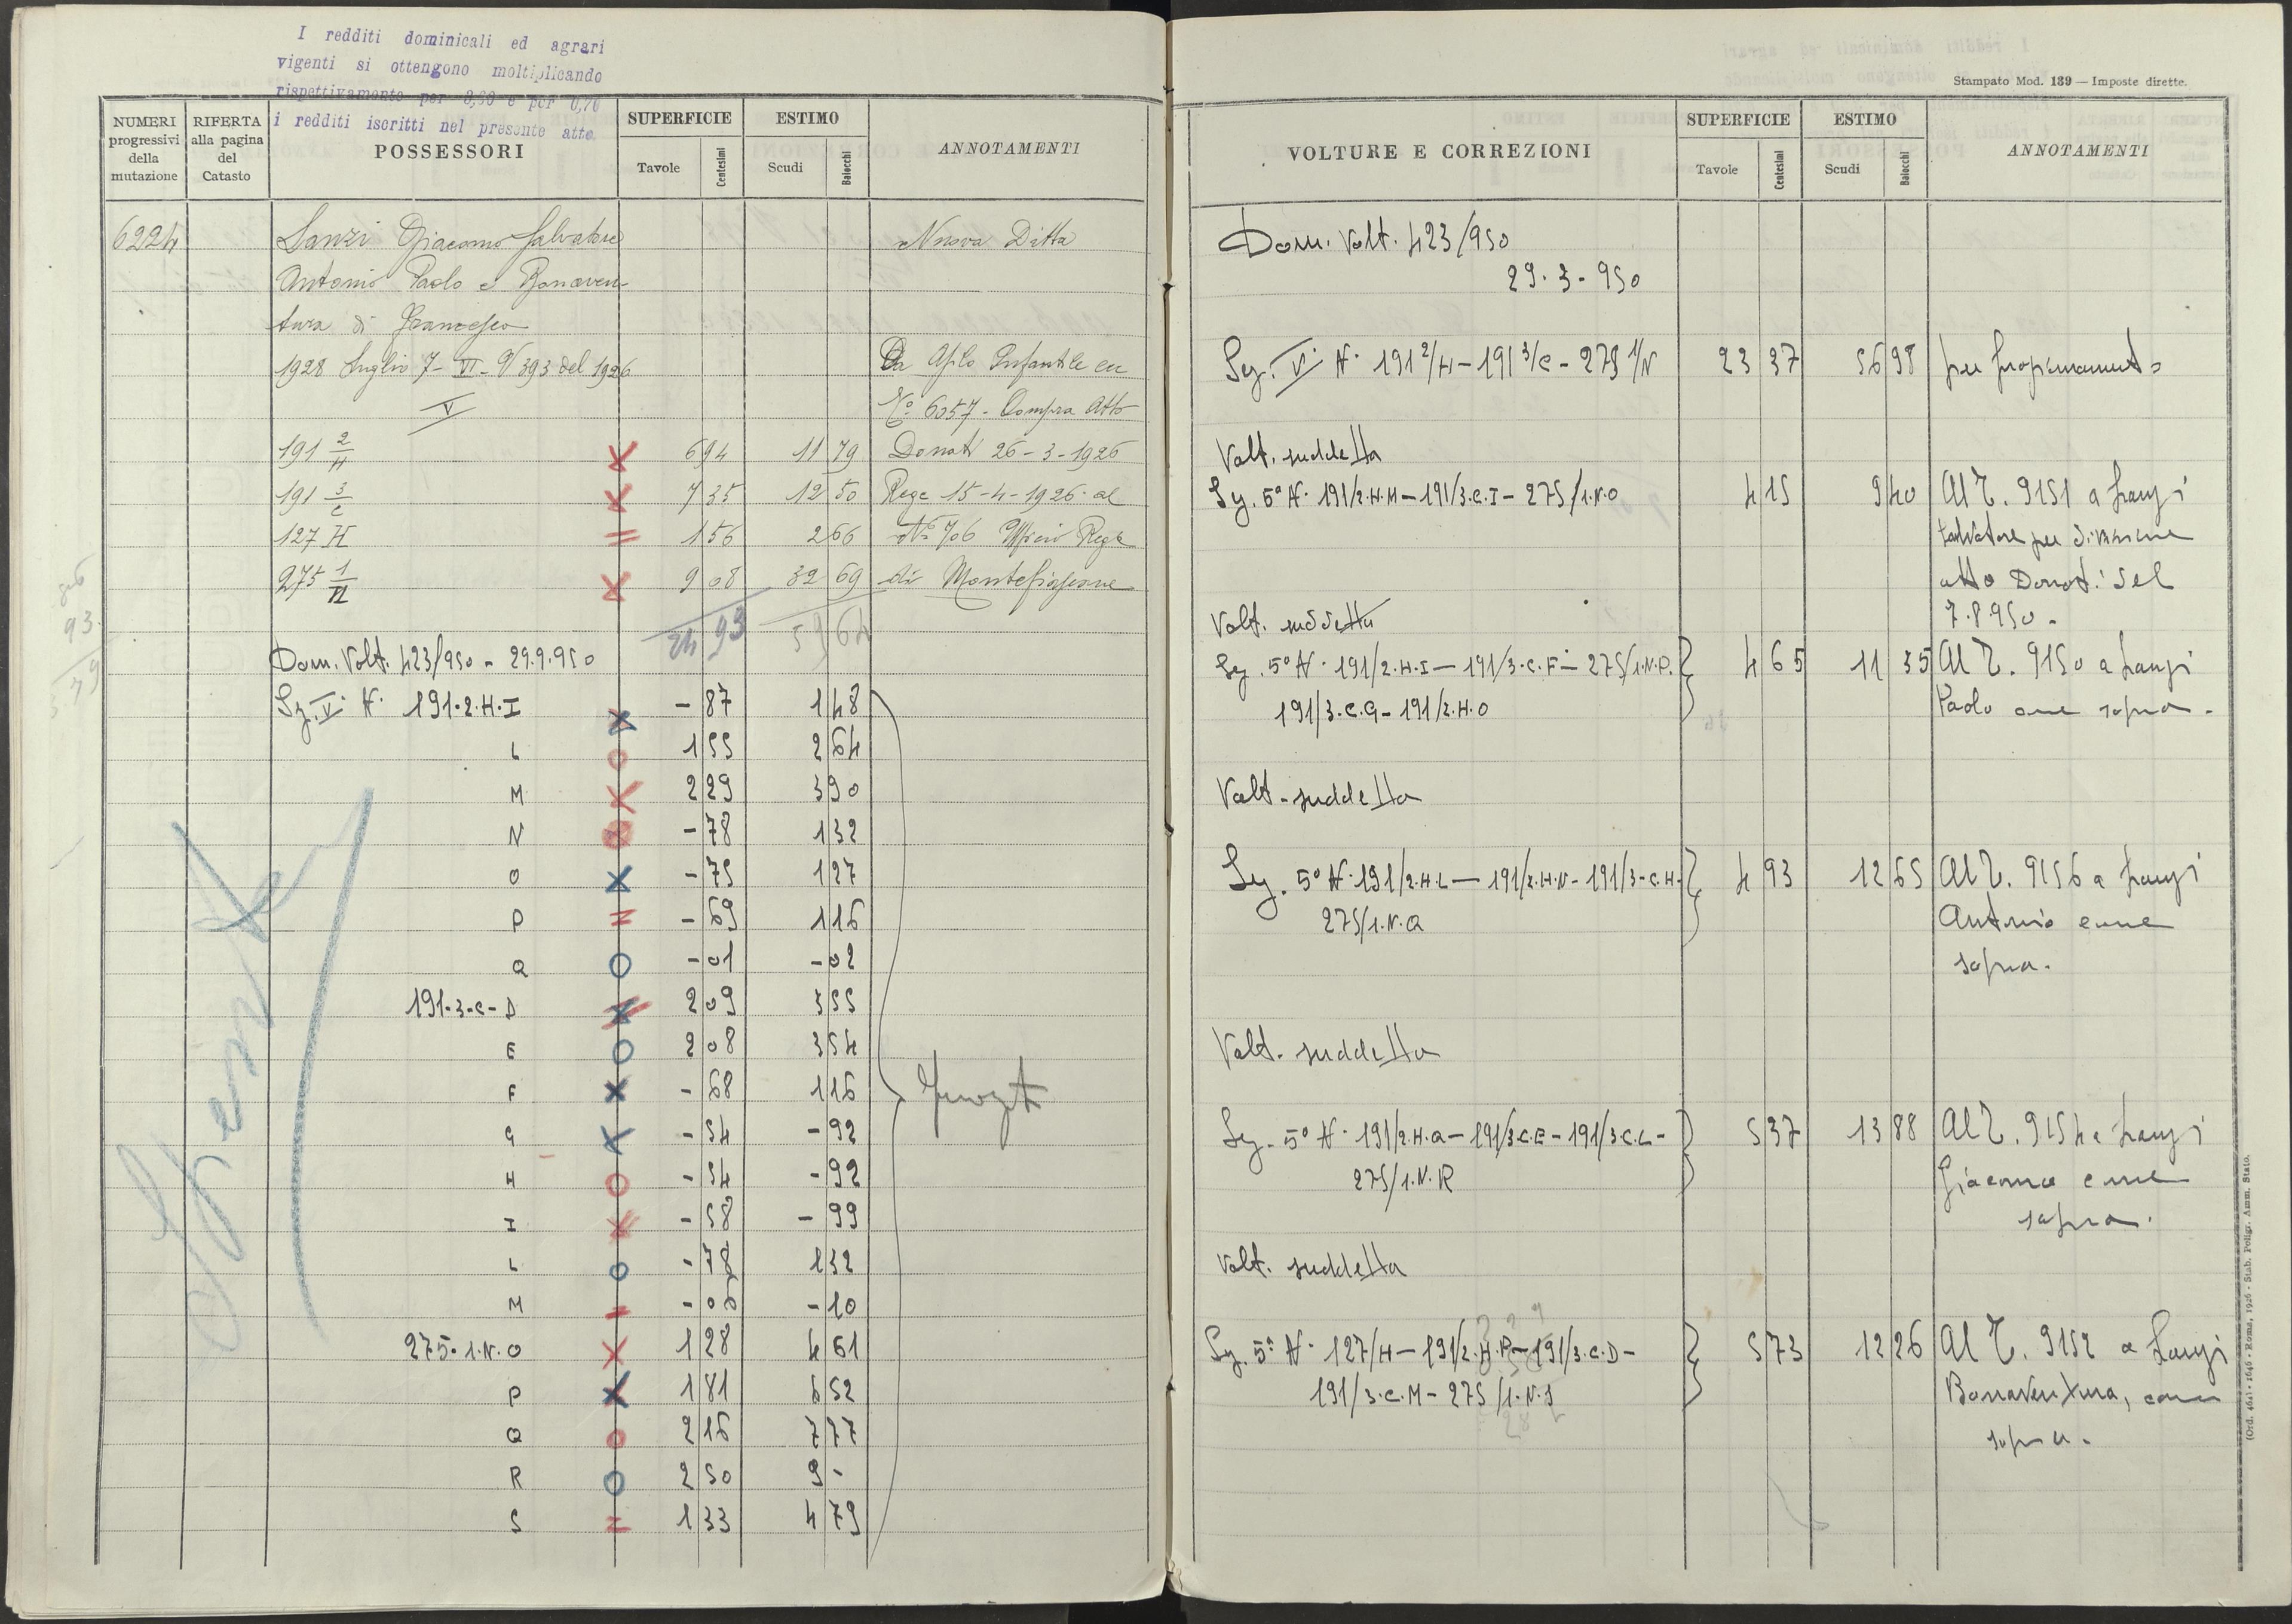 I redditi dominicali ed agrari
vigenti si ottengono moltiplicando
rispettivamente per 0,70
i redditi iscritti nel presente atto
NUMERI progressivi della mutazione
RIFERTA alla pagina del Catasto
POSSESSORI
SUPERFICIE
Tavole Centesimi
ESTIMO
Scudi Baiocchi
ANNOTAMENTI
6224 Lanzi Giacomo Salvatore Nuova Ditta
Antonio Paolo e Bonaven-
tura di Francesco
1928 Luglio 7 - VI - V/393 del 1926 Da Asilo Infantile
V No. 6057 - Compra Atto
191 2/H 6 94 11 79 Donati 26-3-1926
191 3/C 7 35 12 50 Rege 15-4-1926 al
127 H 1 56 2 66 No. 706 Ufficio Rege
275 1/N 9 08 32 69 di Montefiascone
24 93 59 64
Dom. Volt. 423/950 - 29.9.950
Sz. V. N. 191.2.H.I - 87 1 48
L 1 55 2 64
M 2 29 3 90
N - 78 1 32
O - 75 1 27
P - 69 1 16
Q - 01 - 02
191.3.C-D 2 09 3 55
E 2 08 3 54
F - 68 1 16
G - 54 - 92
H - 54 - 92
I - 58 - 99
L - 78 1 32
M - 06 - 10
275.1.N.O 1 28 4 61
P 1 81 6 52
Q 2 16 7 77
R 2 50 9 -
S 1 33 4 79
Spenta
Stampato Mod. 139 — Imposte dirette.
VOLTURE E CORREZIONI
SUPERFICIE
Tavole Centesimi
ESTIMO
Scudi Baiocchi
ANNOTAMENTI
Dom. Volt. 423/950
29.3-950
Sez. V. N. 191 2/H - 191 3/C - 275 1/N 23 37 56 98 per frazionamento
Volt. suddetta
Sez. 5a N. 191/2.H.M - 191/3.C.I - 275/1.N.O 4 15 9 40 Al T. 9151 a Lanzi
Salvatore per divisione
atto Donati del
7.8.950.
Volt. suddetta
Sez. 5o N. 191/2.H.I - 191/3.C.F - 275/1.N.P. 4 65 11 35 Al T. 9150 a Lanzi
191/3.C.G - 191/2.H.O Paolo come sopra.
Volt. suddetta
Sez. 5o N. 191/2.H.L - 191/2.H.N - 191/3.C.H. 4 93 12 65 Al T. 9156 a Lanzi
275/1.N.Q Antonio come
sopra.
Volt. suddetta
Sez. 5o N. 191/2.H.Q - 191/3.C.E - 191/3.C.L - 5 37 13 88 Al T. 9154 a Lanzi
275/1.N.R Giacomo come
sopra.
Volt. suddetta
Sez. 5a N. 127/H - 191/2.H.P - 191/3.C.D - 5 73 12 26 Al T. 9152 a Lanzi
191/3.C.M - 275/1.N.S Bonaventura, come
sopra.
(Ord. 464) - 1646 - Roma, 1926 - Stab. Poligr. Amm. Stato.